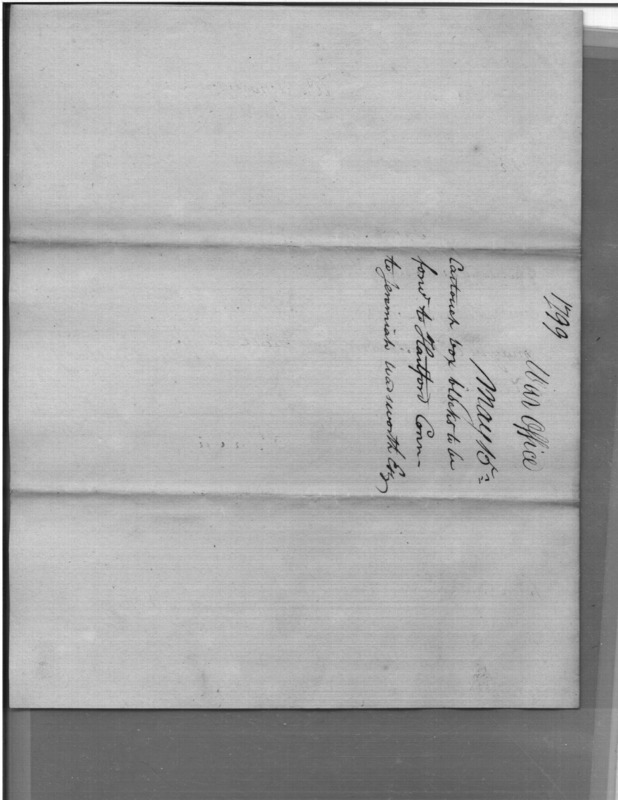 1799
War Office
May 15th
Cartouch box blocks to be
forw'd to Hartford Conn-
to Jeremiah Wadsworth Esq